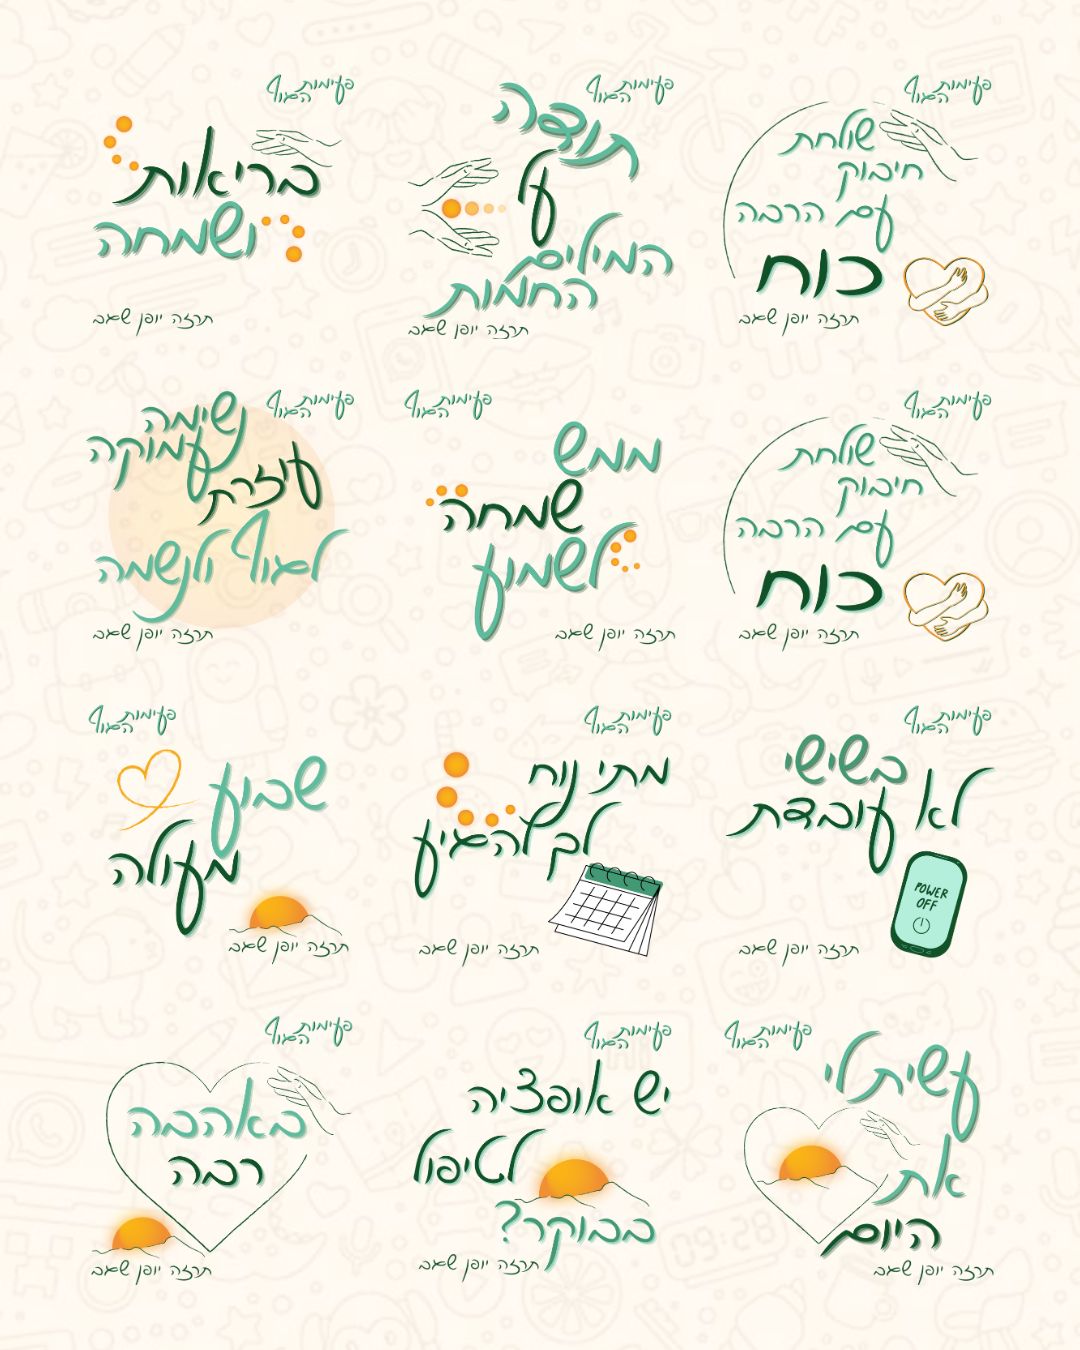 פעימות הגוף
שולחת
חיבוק
עם הרבה
כוח
תרזה יופן שאב
פעימות הגוף
תודה
על
המילים
החמות
תרזה יופן שאב
פעימות הגוף
בריאות
ושמחה
תרזה יופן שאב
פעימות הגוף
שולחת
חיבוק
עם הרבה
כוח
תרזה יופן שאב
פעימות הגוף
ממש
שמחה
לשמוע
תרזה יופן שאב
פעימות הגוף
נשימה
עמוקה
עוזרת
לגוף ולנשמה
תרזה יופן שאב
פעימות הגוף
בשישי
לא עובדת
POWER
OFF
תרזה יופן שאב
פעימות הגוף
מתי נוח
לך להגיע
תרזה יופן שאב
פעימות הגוף
שבוע
מעולה
תרזה יופן שאב
פעימות הגוף
עשית לי
את
היום
תרזה יופן שאב
פעימות הגוף
יש אופציה
לטיפול
בבוקר?
תרזה יופן שאב
פעימות הגוף
באהבה
רבה
תרזה יופן שאב
09:28